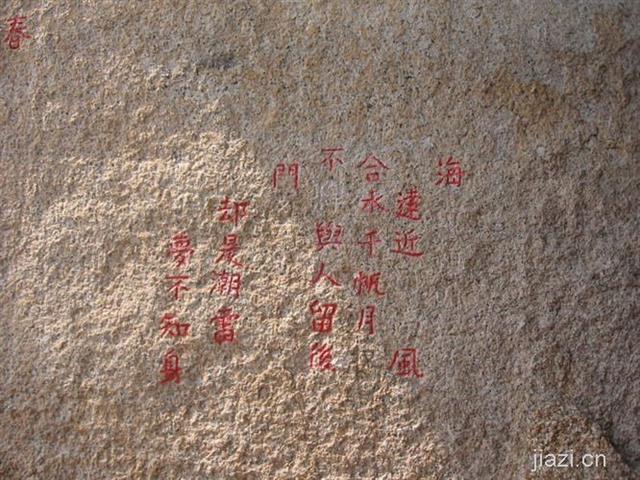 海
遠近 風
合水平帆月
不 與人留後
門
却晨潮雷
夢不知身
春
jiazi.cn